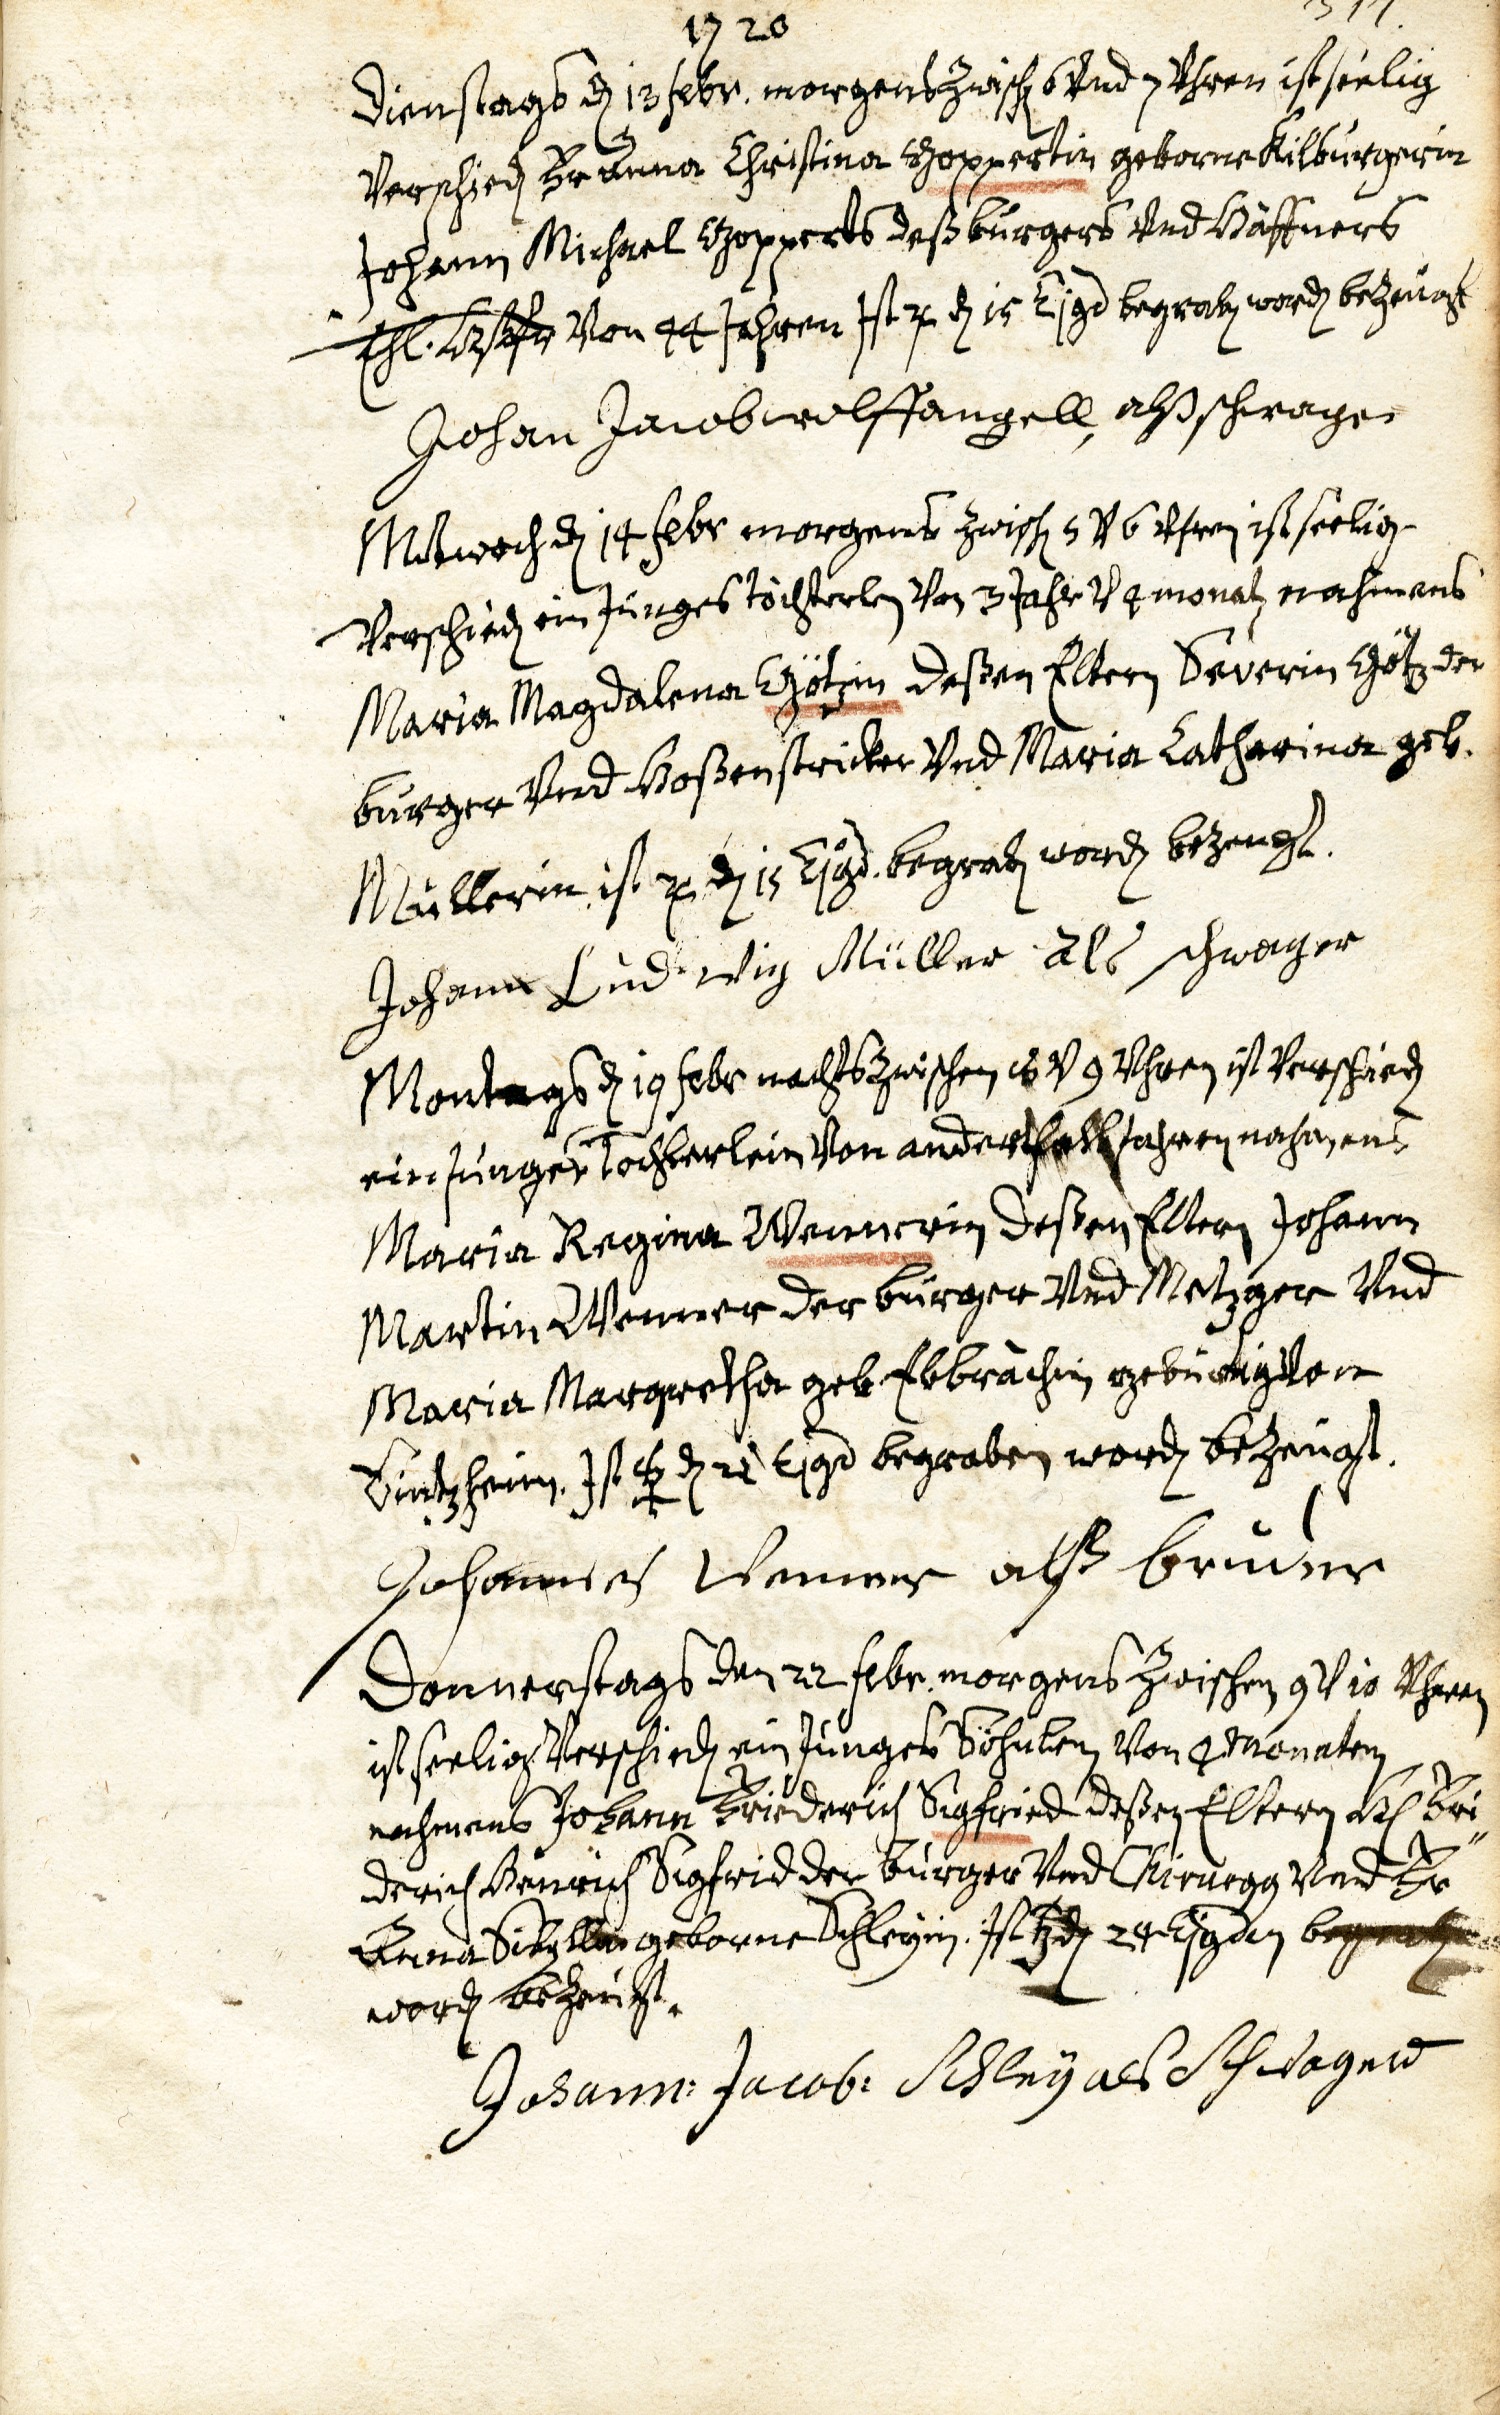 1720
Dienstags dẽ 13 febr. morgens zwischẽ 6 Vnd 7 Vhren ist seelig
Verschiedẽ Fr Anna Christina Goppertin geborne Kilburgerin
Johann Michael Gopperts deß burgers Vnd Häffners
Ehl. Von 44 Jahren Ist dẽ 15 Ejgd begrabẽ wordẽ bezeugt
Johan Jacob wolffangell, alß schwager
Mitwoch dẽ 14 febr morgens zwischẽ 5 V 6 Vhren ist seelig
Verschiedẽ ein Junges töchterlen Von 3 Jahr V 4 monat nahmens
Maria Magdalena Götzin deßen Eltern Severin Götz der
burger Vnd Hoßenstricker Vnd Maria Catharina geb.
Müllerin ist dẽ 15 Ejgd. begrabẽ wordẽ bezeugt.
Johann Ludwig Müller Als schwager
Montags dẽ 19 febr nachts zwischen 8 V 9 Vhren ist Verschiedẽ
ein Junges Töchterlein Von anderthalb Jahren nahmens
Maria Regina Wennerin deßen Eltern Johann
Martin Wenner der burger Vnd Metzger Vnd
Maria Margretha geb. gebürtig Von
Sintzheim. Ist dẽ 21 Ejgd begraben wordẽ bezeugt.
Johannes Wenner alß bruder
Donnerstags den 22 febr. morgens zwischen 9 V 10 Vhren
ist seelig Verschiedẽ ein Junges Söhnlen Von 4 Monaten
nahmens Johann Friederich Sigfried deßen Eltern H Fri
derich Henrich Sigfrid der burger Vnd Chirurgg Vnd Fr
Anna Sibylla geborne Schleyin. Ist dẽ 24 Ejgden begrabẽ
wordẽ bezeugt.
Johann: Jacob: Schleÿ als Schwager